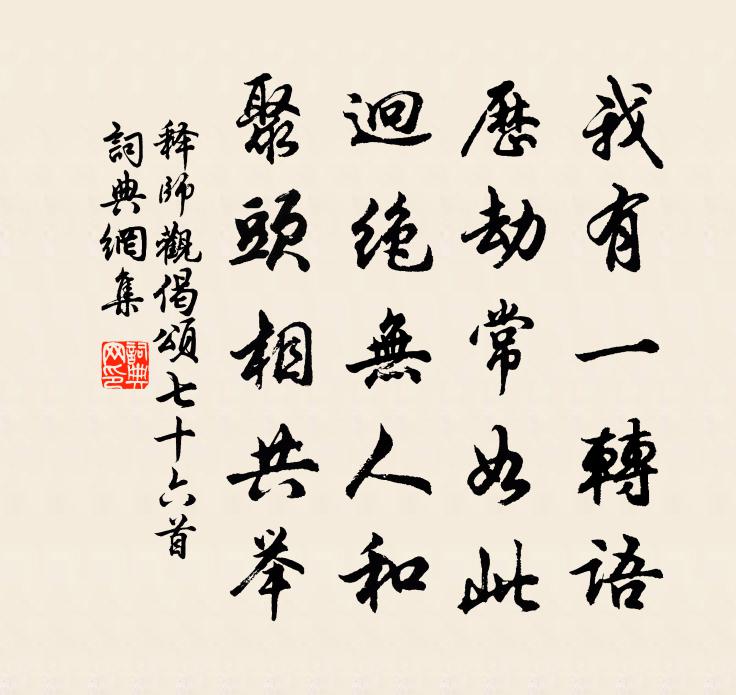 我有一轉語
歷劫常如此
迥絶無人和
聚頭相共举
释師觀偈頌七十六首
詞典網集
詞典網印